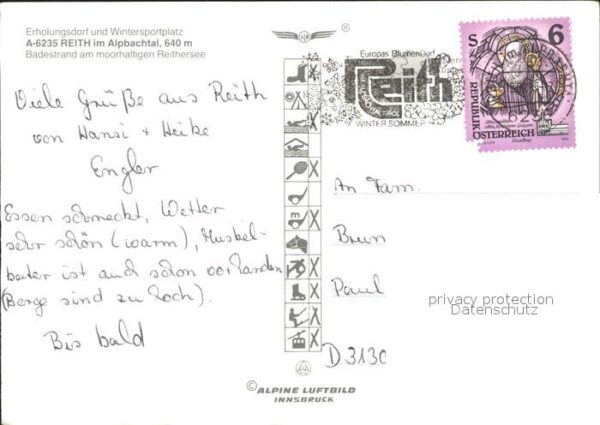 Erholungsdorf und Wintersportplatz
A-6235 REITH im Alpbachtal, 640 m
Badestrand am moorhaltigen Reithersee
Viele Grüße aus Reith
von Hansi + Heike
Engler
Essen schmeckt, Wetter
sehr schön (warm), Muskel-
kater ist auch schon vorhanden
(Berge sind zu hoch).
Bis bald
Europas Blumendorf
Reith
WINTER SOMMER
S 6
REPUBLIK
ÖSTERREICH
6235
An Fam.
Brun
Paul
privacy protection
Datenschutz
D 3130
© ALPINE LUFTBILD
INNSBRUCK